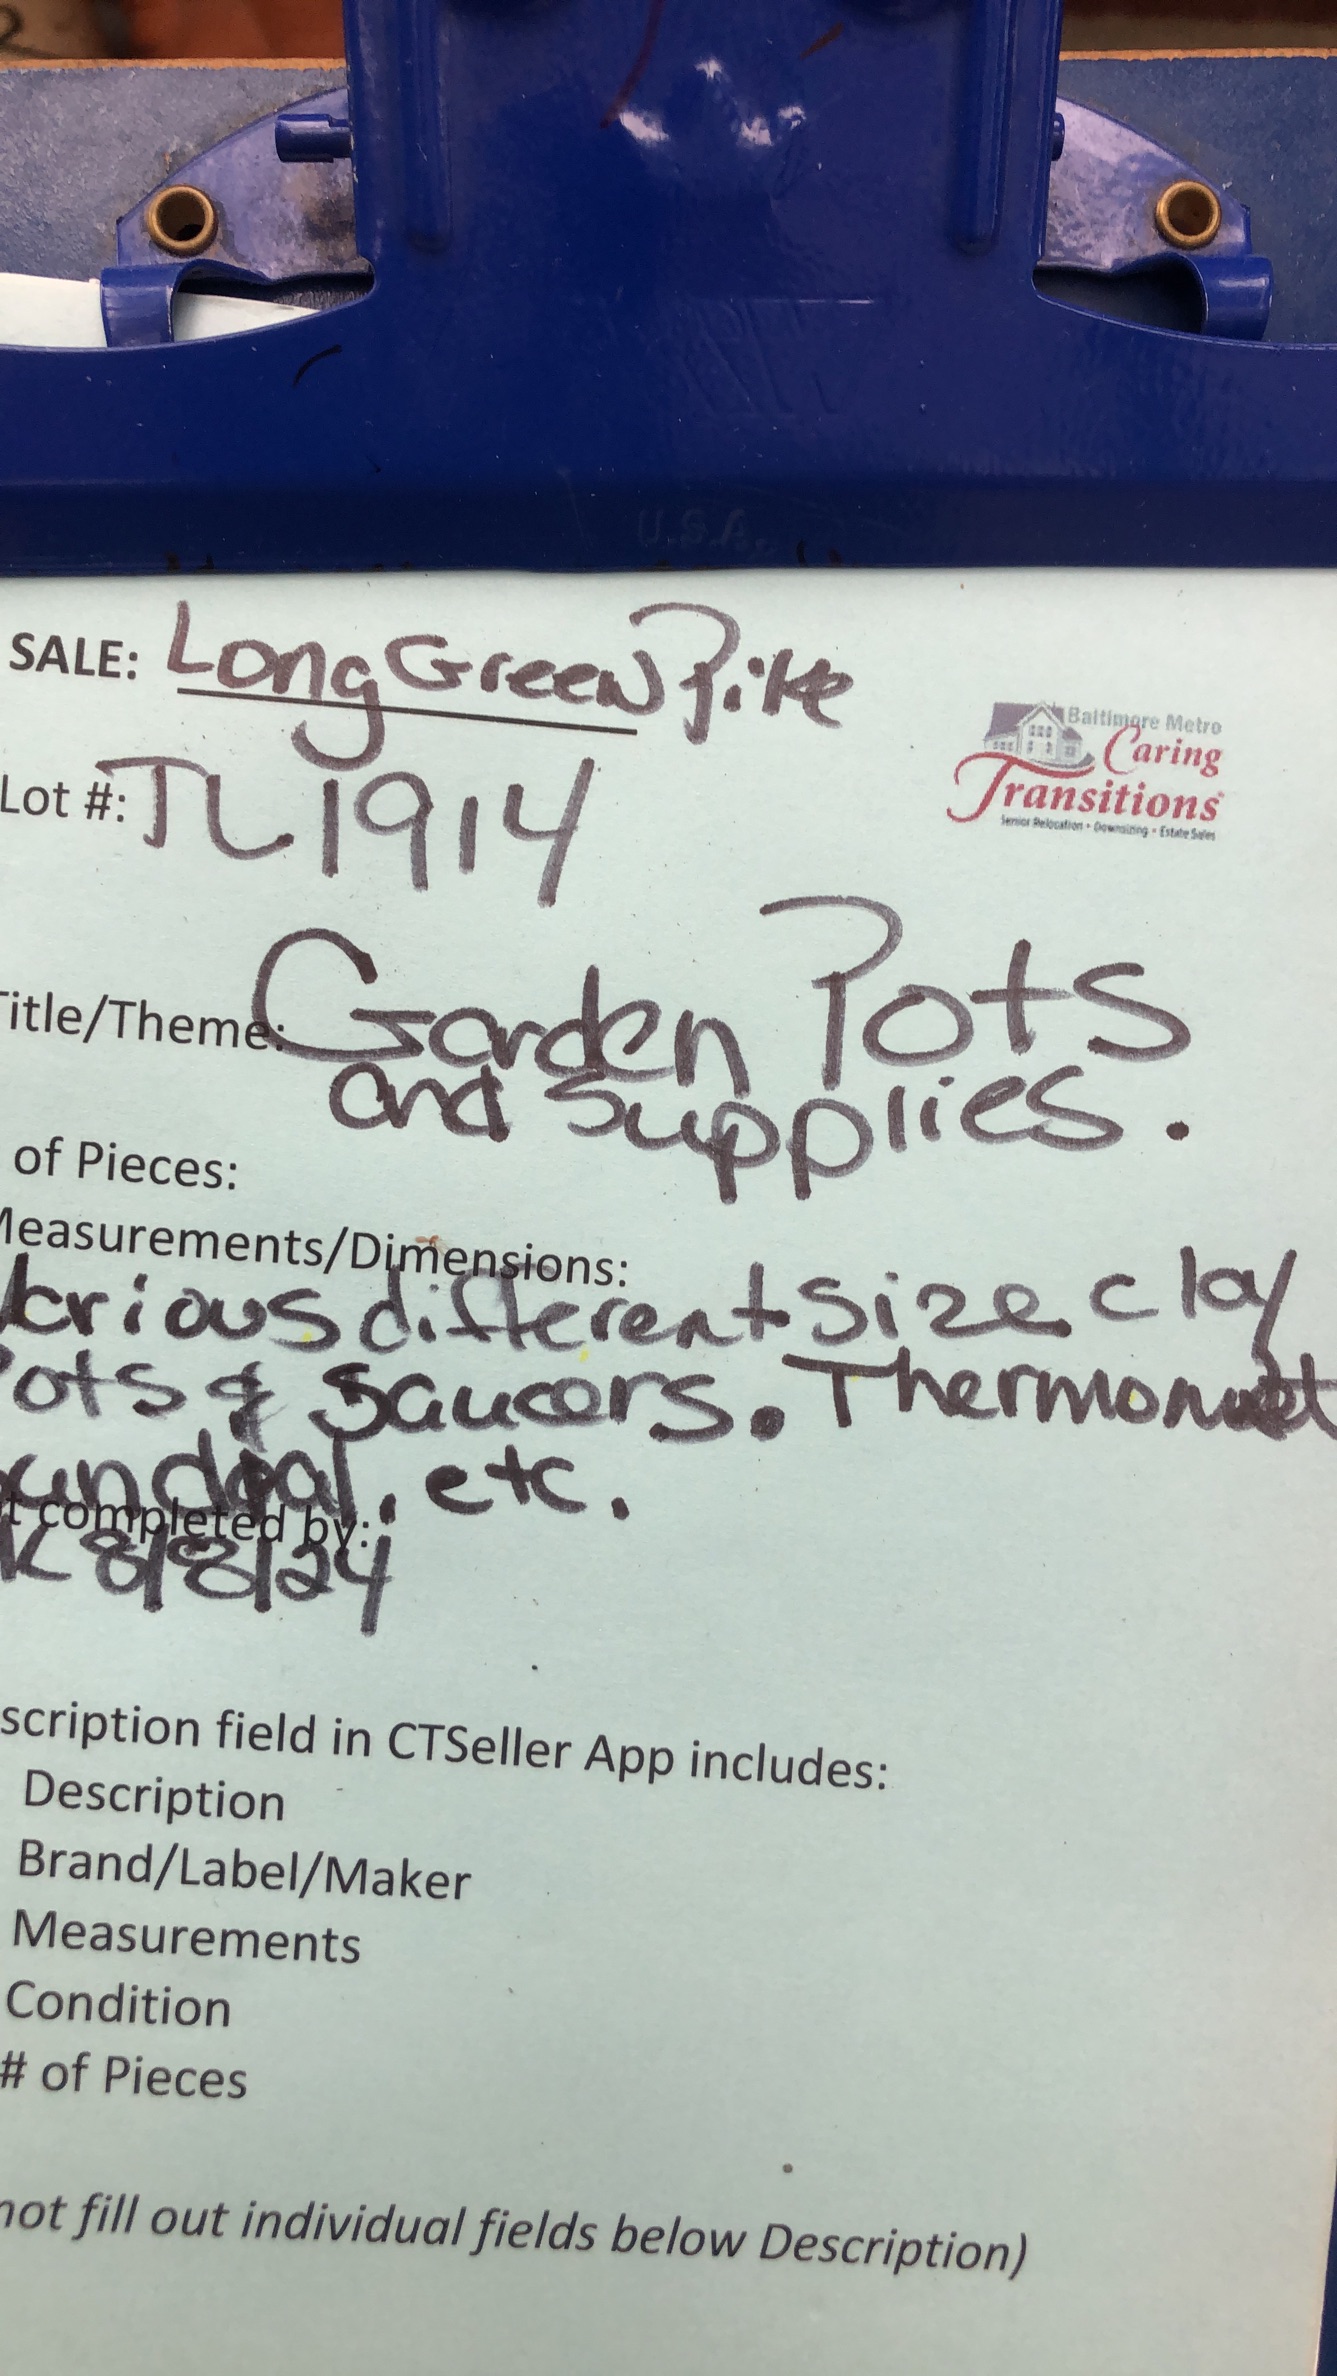 U.S.A.
SALE: Long Green Pike
Baltimore Metro
Caring
Transitions
Senior Relocation • Downsizing • Estate Sales
Lot #: JL1914
Title/Theme: Garden Pots
and Supplies.
of Pieces:
Measurements/Dimensions:
Various different size clay
Pots & Saucers.
sundial, etc.
t completed by:
8/8/24
scription field in CTSeller App includes:
Description
Brand/Label/Maker
Measurements
Condition
# of Pieces
not fill out individual fields below Description)